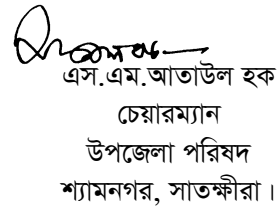 এস.এম.আতাউল হক
চেয়ারম্যান
উপজেলা পরিষদ
শ্যামনগর, সাতক্ষীরা।